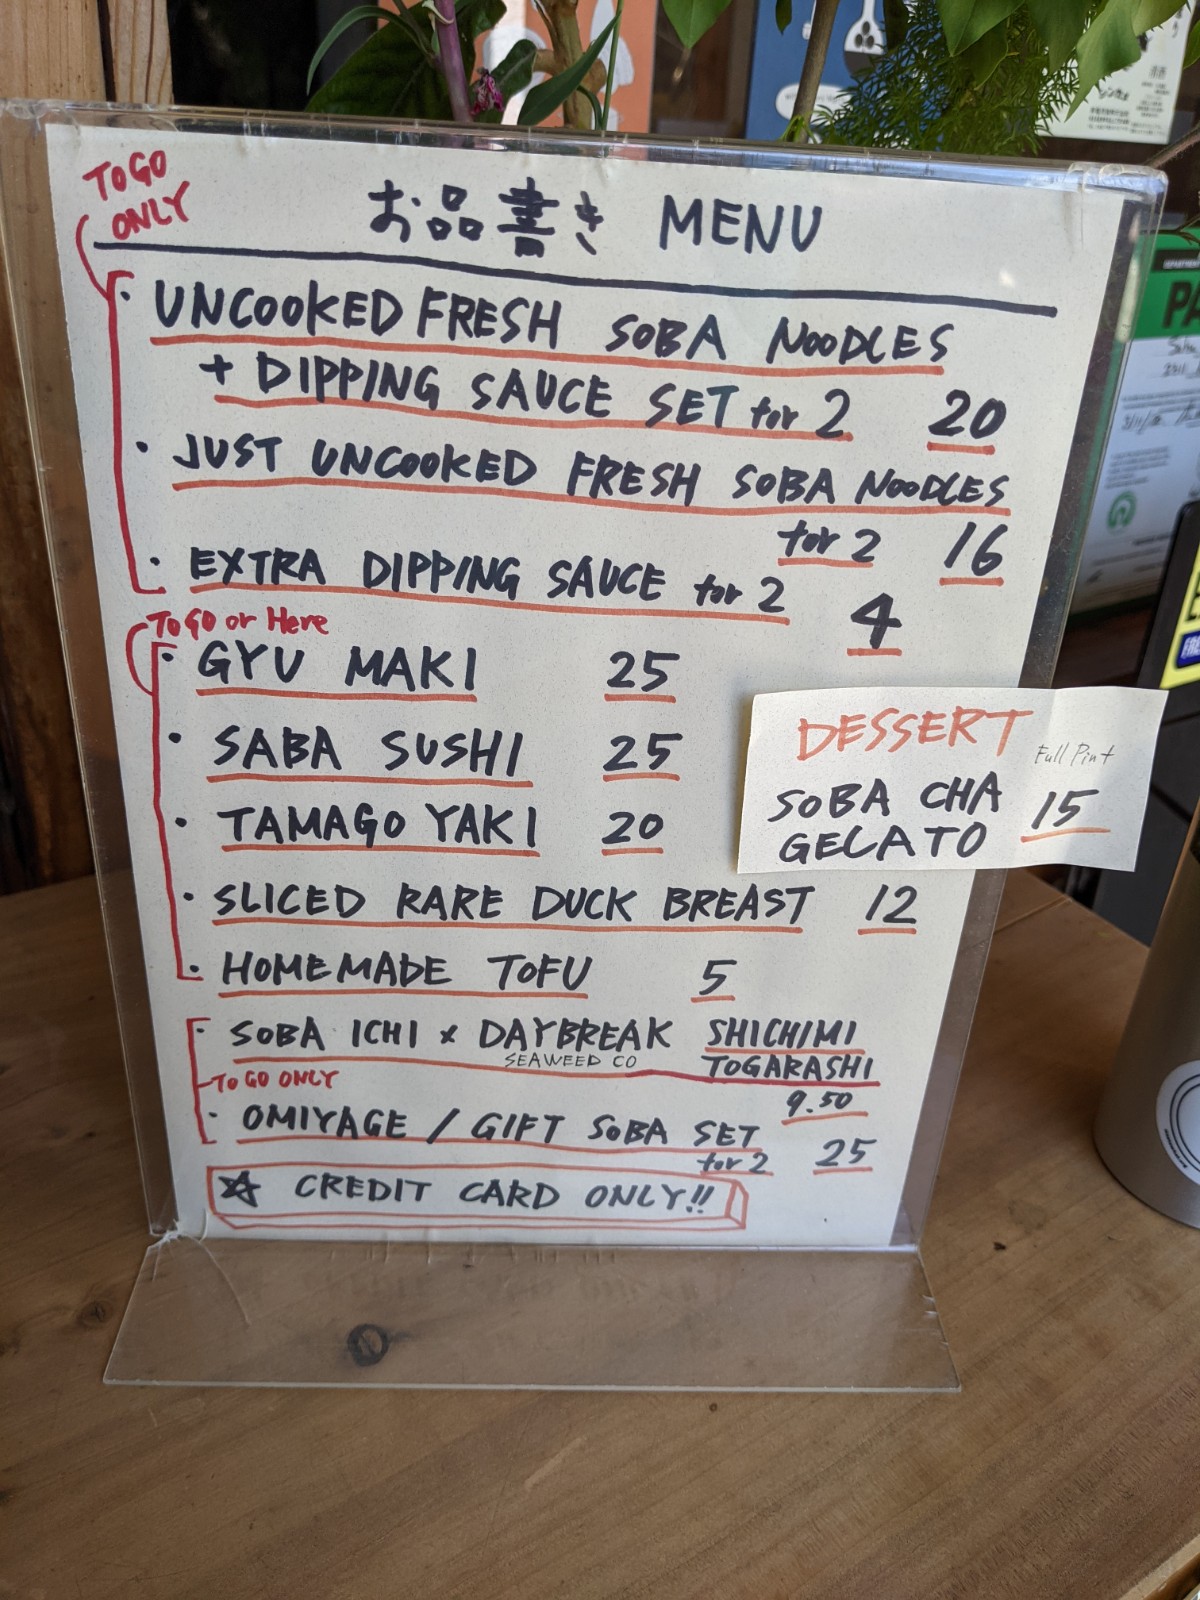 TO GO
ONLY
お品書き MENU
· UNCOOKED FRESH SOBA NOODLES
+ DIPPING SAUCE SET for 2 20
· JUST UNCOOKED FRESH SOBA NOODLES
for 2 16
· EXTRA DIPPING SAUCE for 2 4
TO GO or Here
· GYU MAKI 25
· SABA SUSHI 25
· TAMAGO YAKI 20
· SLICED RARE DUCK BREAST 12
· HOMEMADE TOFU 5
· SOBA ICHI x DAYBREAK SHICHIMI
SEAWEED CO TOGARASHI
9.50
TO GO ONLY
· OMIYAGE / GIFT SOBA SET
for 2 25
☆ CREDIT CARD ONLY!!
DESSERT
Full Pint
SOBA CHA
GELATO 15
PA